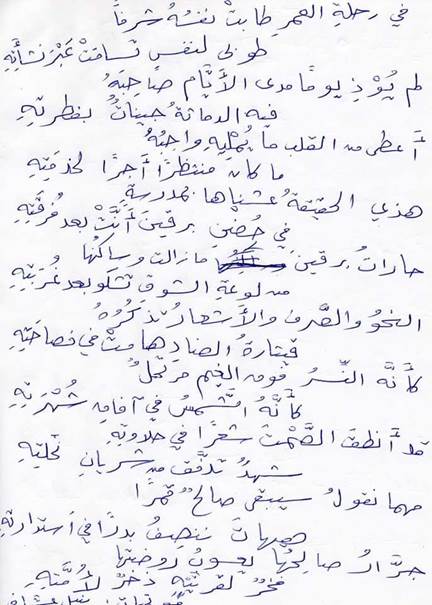 في رحلةِ العمرِ طابتْ نفسُهُ شرفاً
طوبى لنفسٍ تسامتْ عَبْرَ نشأتِهِ
لم يُؤْذِ يوماً مدى الأيَّامِ صاحبَهُ
فيهِ الدماثةُ جيناتٌ بفطرتِهِ
أعطى من القلبِ ما يُمْليهِ واجبُهُ
ما كان منتظراً أجراً لخدمتِهِ
هذي الحقيقةُ عشناها بمدرسةٍ
في حُضْنِ برقينَ أنَّتْ بعد فُرقتِهِ
حاراتُ برقينَ ما زالت وساكنُها
من لوعةِ الشوقِ تشكو بعد غُربتِهِ
النحوُ والصَّرفُ والأشعارُ تذكُرُهُ
قيثارةُ الضادِ هامتْ في فصاحتِهِ
كأنَّهُ النِّسرُ فوق الغيم مرتحلٌ
كأنَّهُ الشَّمسُ في آفاقِ شُهْرَتِهِ
قد أنطقَ الصَّمْتَ شعراً في حلاوتِهِ
شهدٌ تدفَّق من شريانِ نحلتِهِ
مهما نقولُ سيبقى صالحٌ قمراً
هيهاتَ ننصِفُ بدراً في استدارتِهِ
جرَّارُ صالحُها يعسوبُ روضتِها
فخرٌ لقريتِهِ ذخرٌ لأُمَّتِهِ